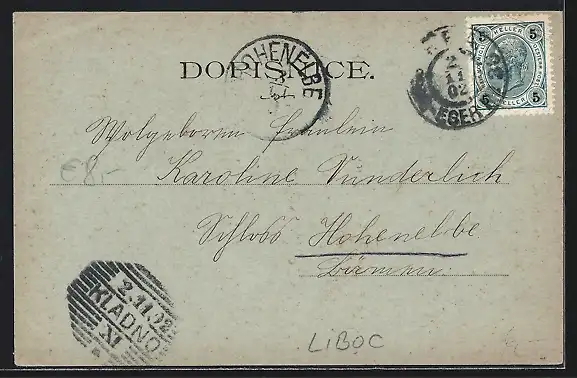 DOPISNICE.
HOHENELBE
2
11
02
EGER
5 HELLER 5
5 HELLER 5
Wolgeboren Fräulein
€8,-
Karoline Wunderlich
Schloss Hohenelbe
Böhmen.
2.11.02
KLADNO
XI
LIBOC